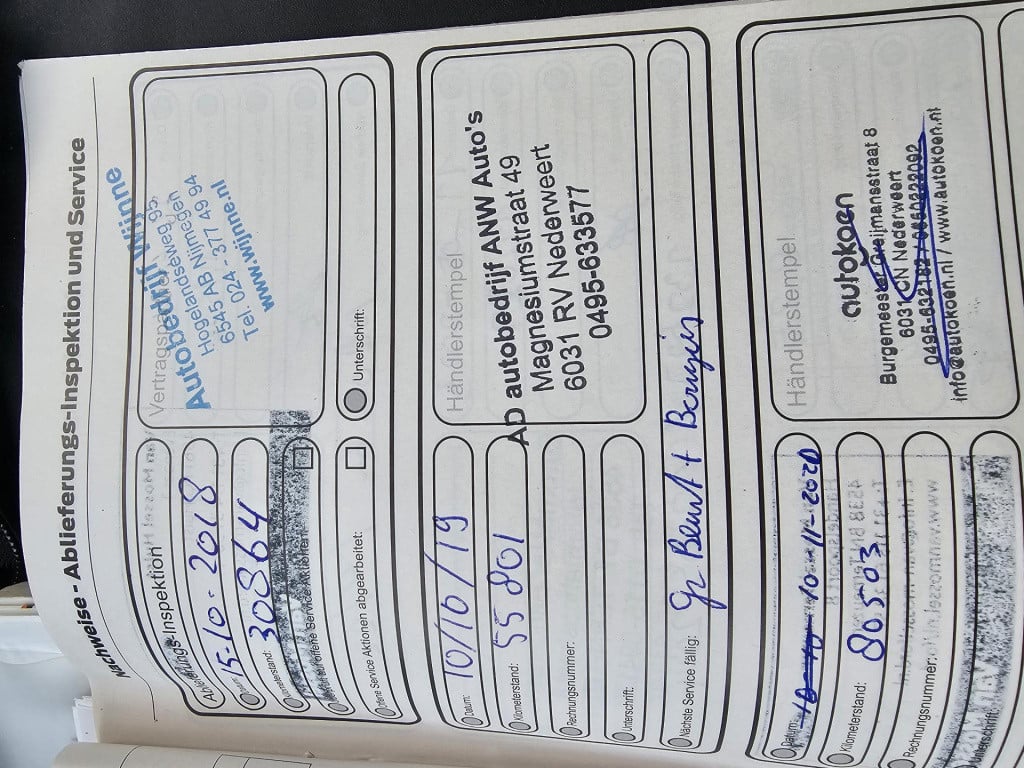 Nachweise - Ablieferungs-Inspektion und Service
Inspektion
15-10-2018
30864
Offene Service Aktionen abgearbeitet:
Autobedrijf Wijnne
Hogelandseweg 95
6545 AB Nijmegen
Tel. 024 - 377 49 94
www.wijnne.nl
Unterschrift:
Datum: 10/10/19
Kilometerstand: 55801
Rechnungsnummer:
Unterschrift:
Nächste Service fällig:
Händlerstempel
AD autobedrijf ANW Auto's
Magnesiumstraat 49
6031 RV Nederweert
0495-633577
Datum: 10-11-2020
Kilometerstand: 80503
Rechnungsnummer:
Unterschrift:
Händlerstempel
autokoen
Burgemeester Greijmansstraat 8
6031 CN Nederweert
info@autokoen.nl / www.autokoen.nl